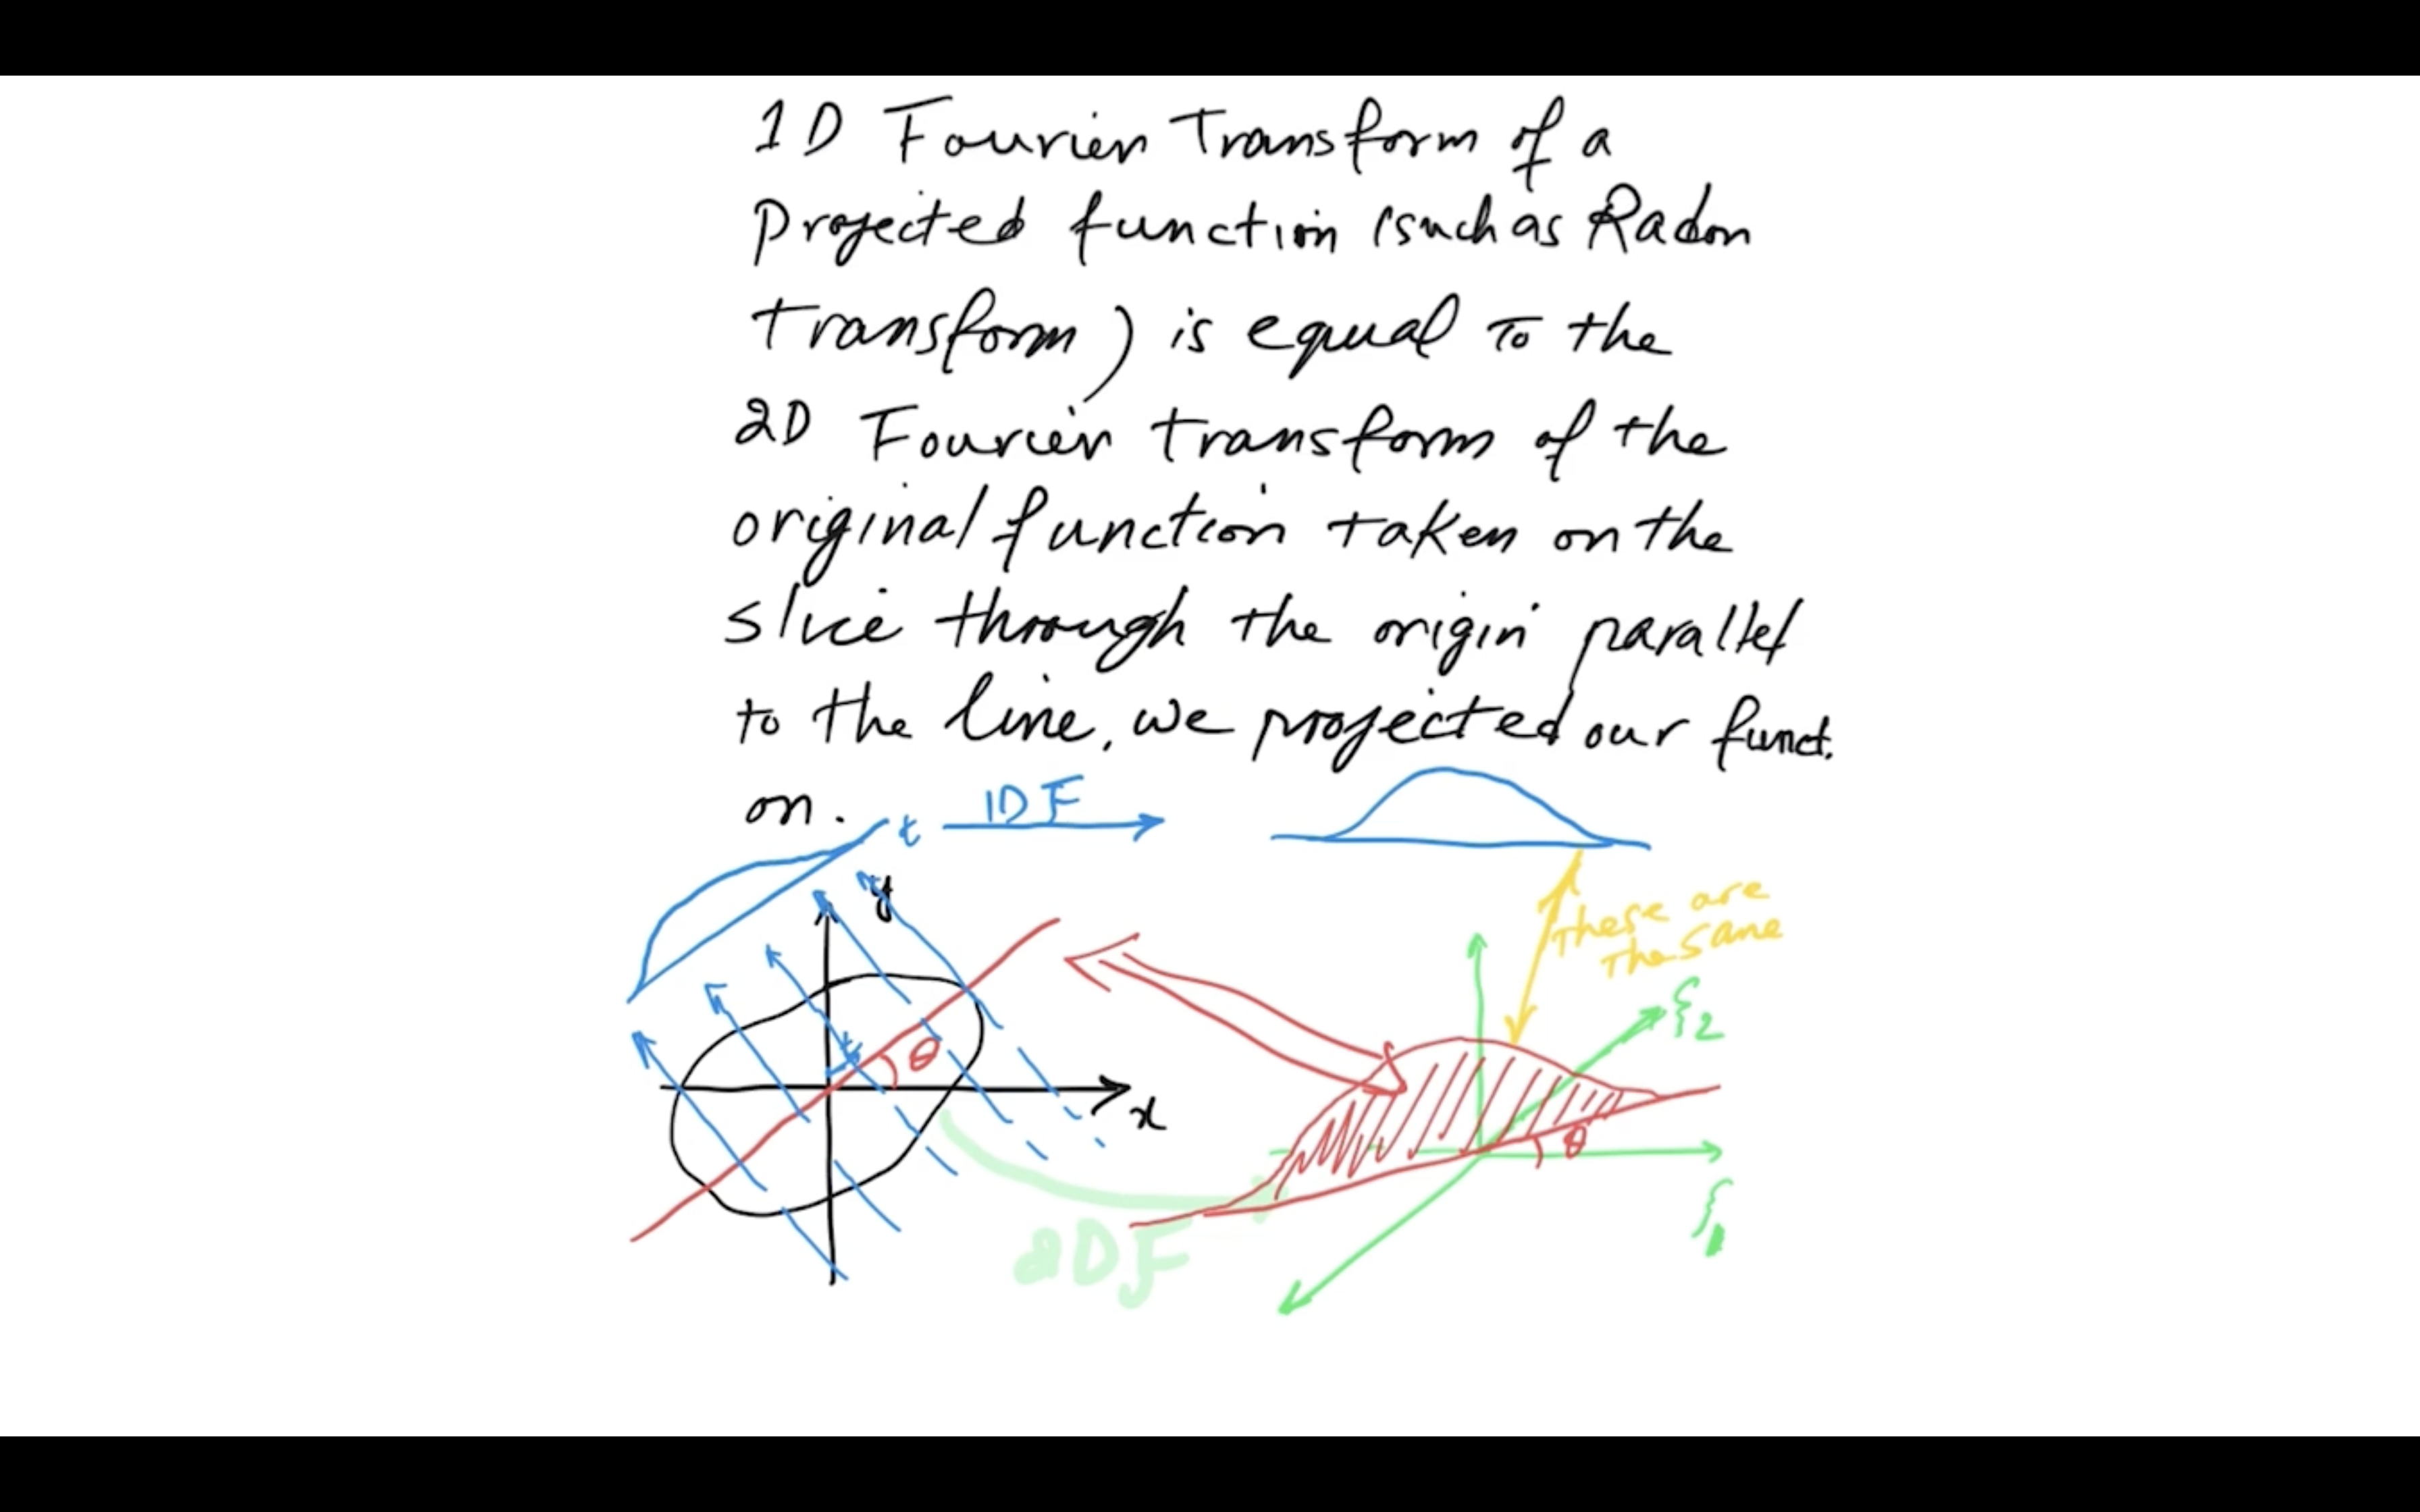 1D Fourier Transform of a
Projected function (such as Radon
transform) is equal to the
2D Fourier transform of the
original function taken on the
slice through the origin parallel
to the line, we projected our funct.
on.
t
1D F
y
These are
the same
ξ2
θ
x
θ
ξ1
2DF